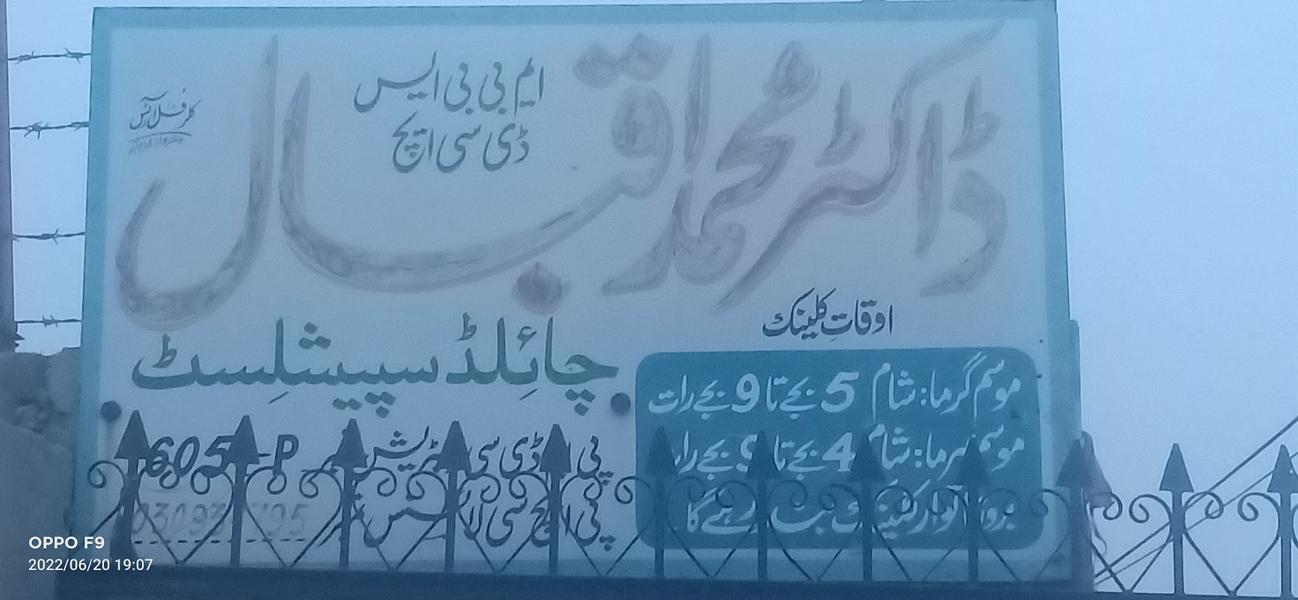 ڈاکٹر محمد اقبال
ایم بی بی ایس
ڈی سی ایچ
چائلڈ سپیشلسٹ
اوقاتِ کلینک
موسم گرما: شام 5 بجے تا 9 بجے رات
موسم سرما: شام 4 بجے تا 9 بجے رات
بروز اتوار کلینک بند رہے گا
پی ایم ڈی سی رجسٹریشن 605 -P
پی ایچ سی لائسنس نمبر
OPPO F9
2022/06/20 19:07